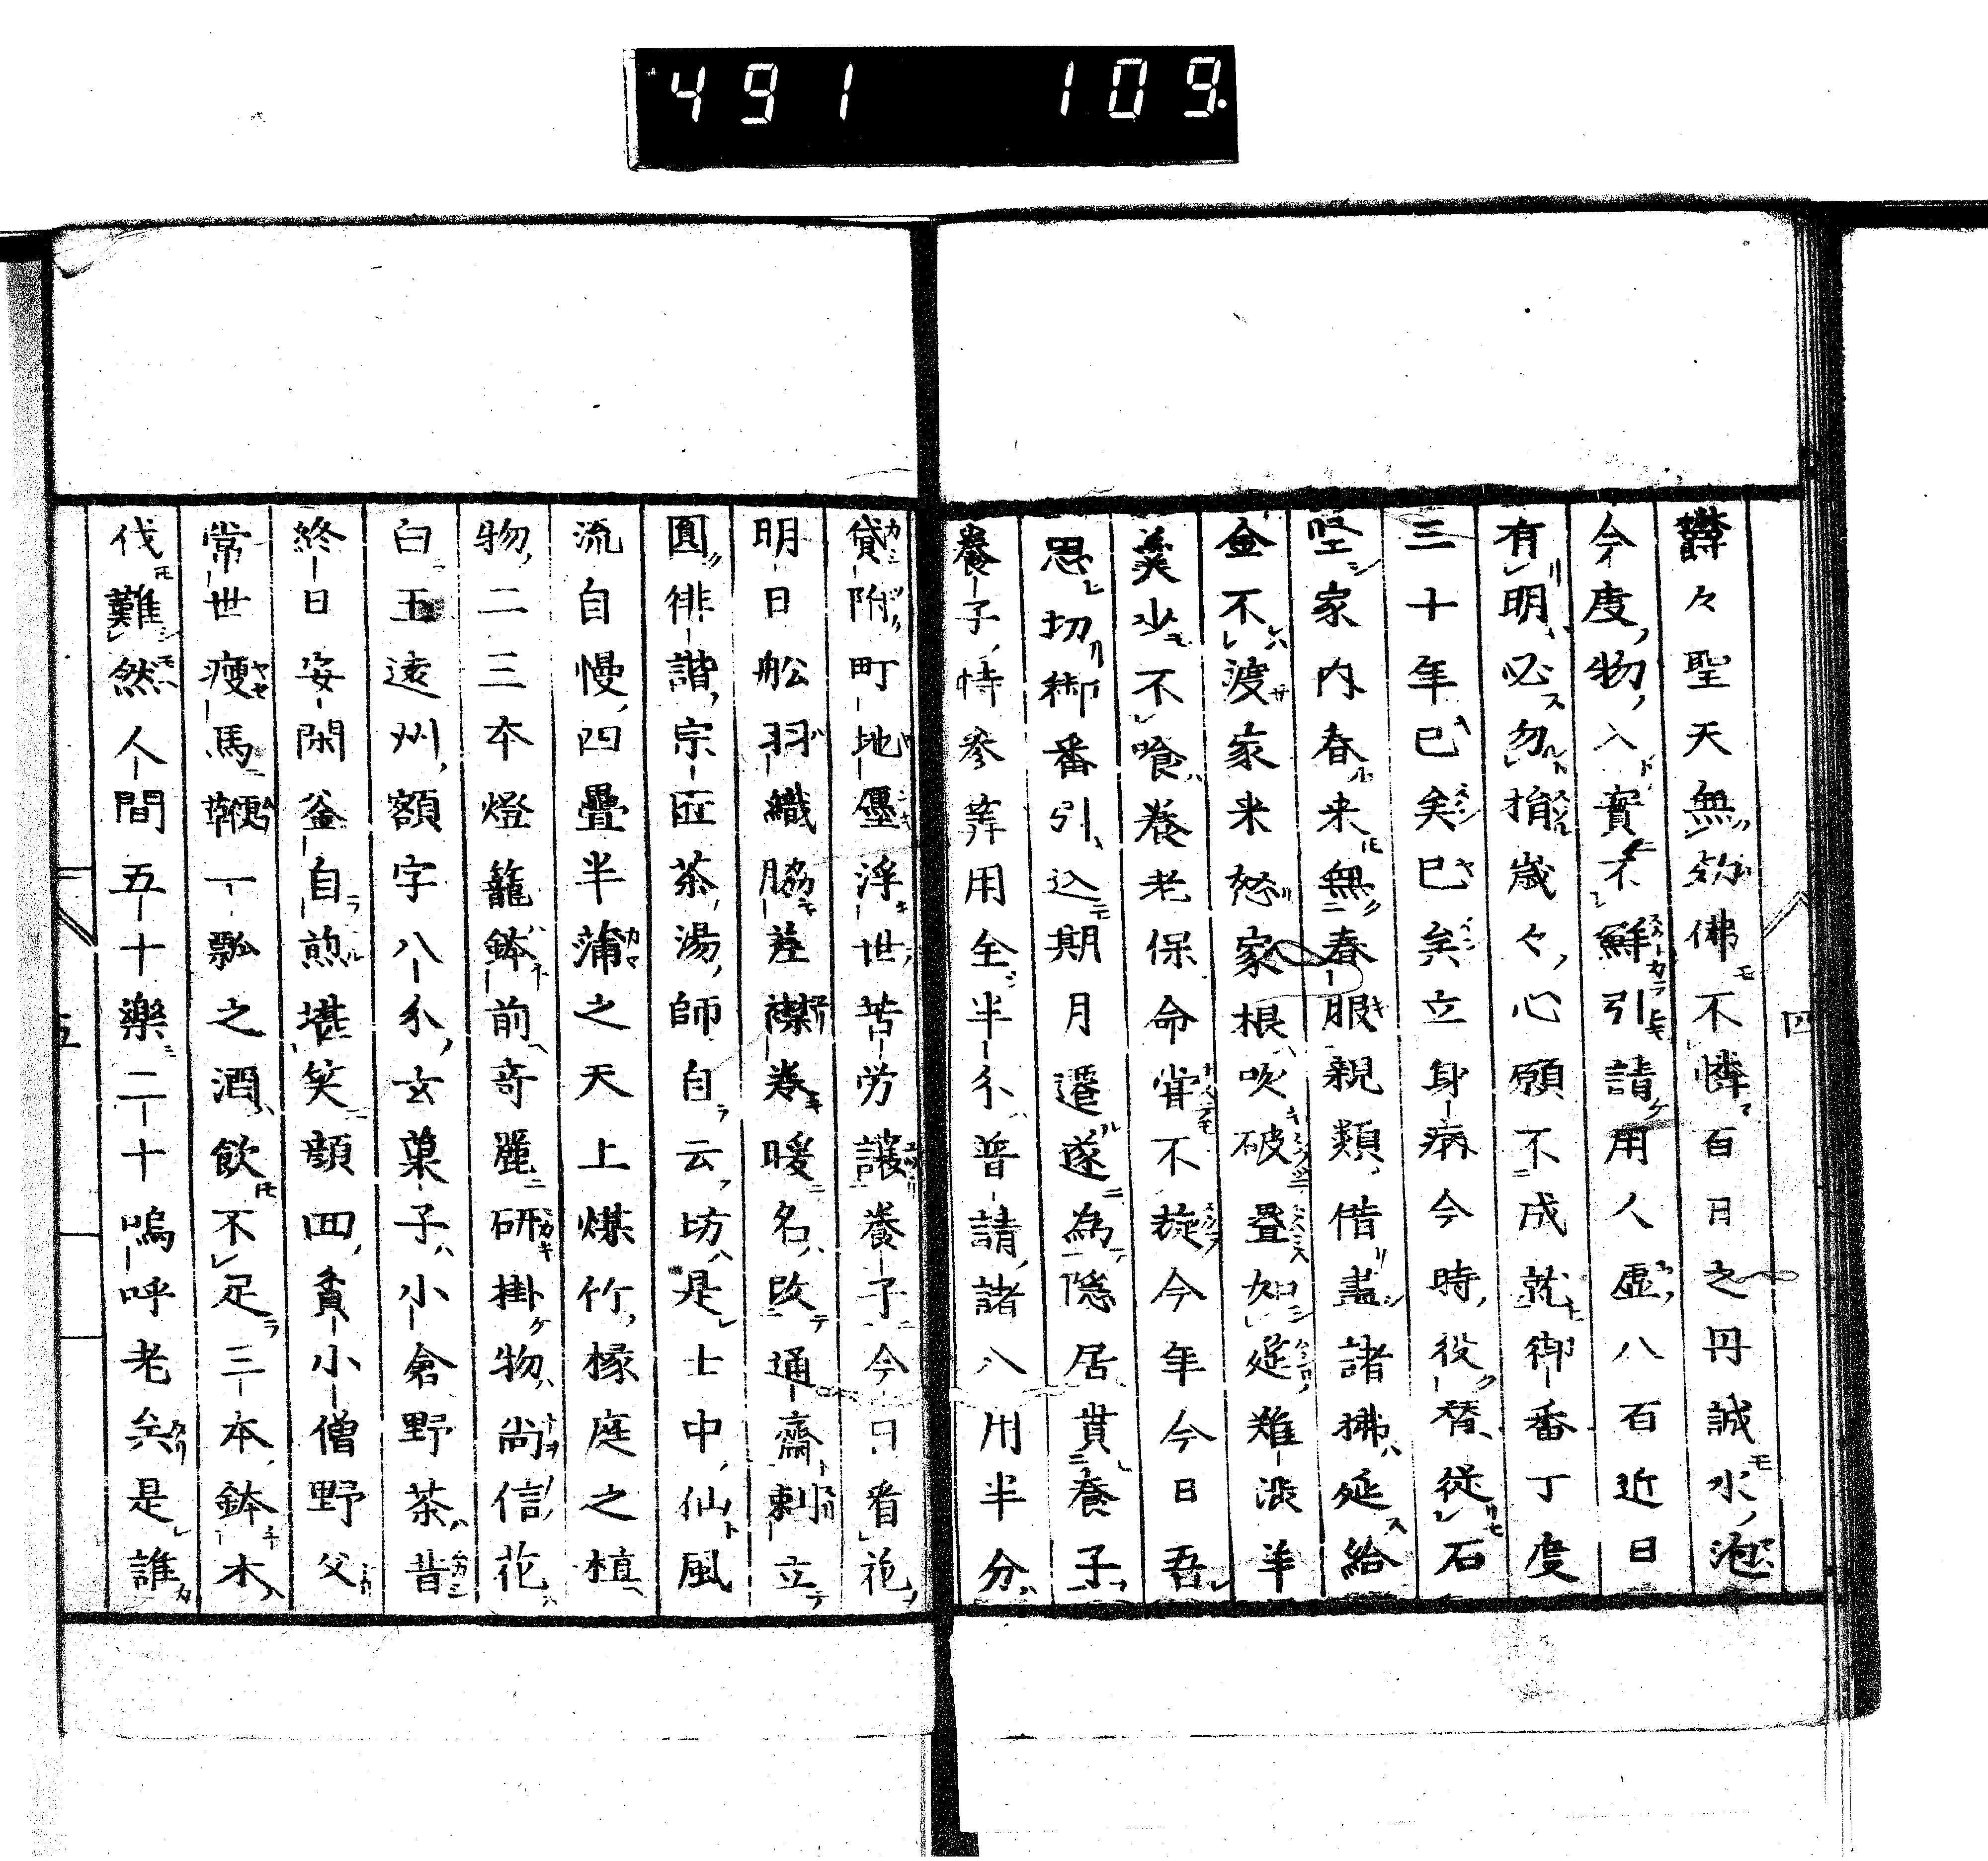 491 109.
欝々聖天無効佛不憐百日之丹誠水泡
今度物入實不鮮引請用人虚八百近日
有明必勿損歳々心願不成就御番丁度
三十年已矣已矣立身病今時役替従石
堅家内春来無春服親類借盡諸拂延給
金不渡家来怒家根吹破疊如延難澁羊
羮少不喰養老保命甞不旋今年今日吾
思切御番引込期月遷遂為隠居貰養子
養子持参葬用全半分普請諸入用半分
貸附町地壥浮世苦労譲養子今日看花
明日舩羽織脇差襟巻暖名改通齋剃立
圓徘諧宗匠茶湯師自云坊是士中仙風
流自慢四疊半蒲之天上煤竹椽庭之植
物二三本燈籠鉢前奇麗研掛物尚信花
白玉遠州額字八分玄菓子小倉野茶昔
終日安閑釜自煎堪笑顔四貧小僧野父
常世瘦馬鞭一瓢之酒飲不足三本鉢木
伐難然人間五十樂二十嗚呼老矣是誰
四
五